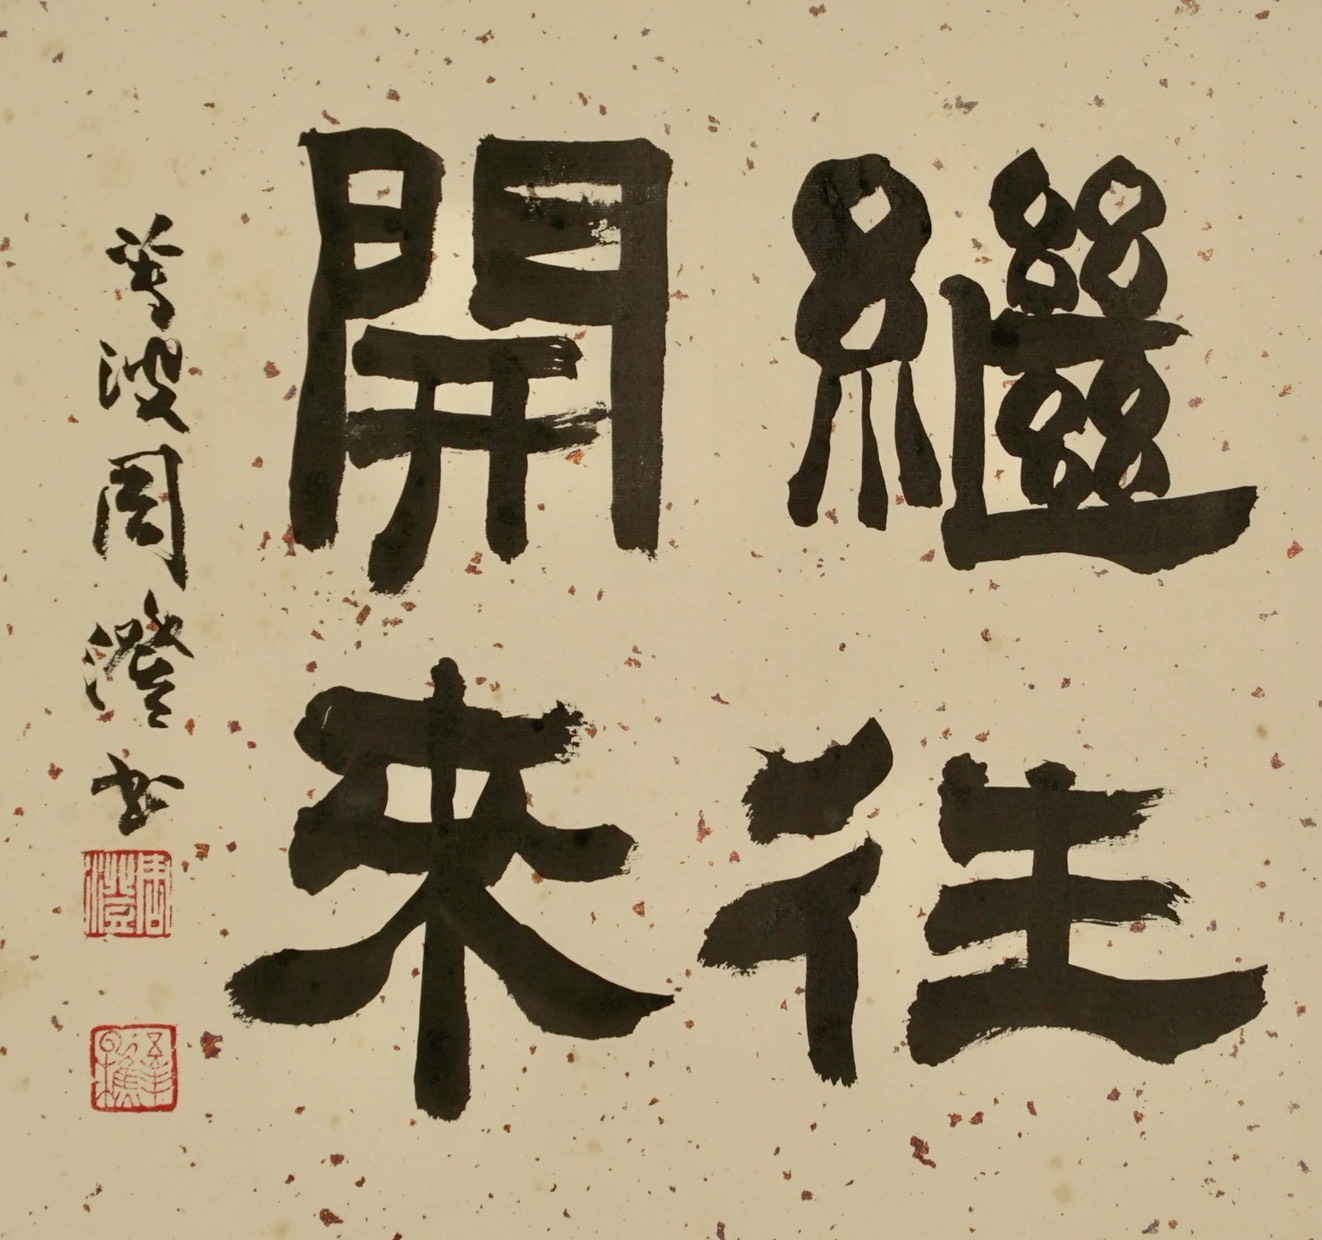 繼往
開來
蓴波周澄書
周澄